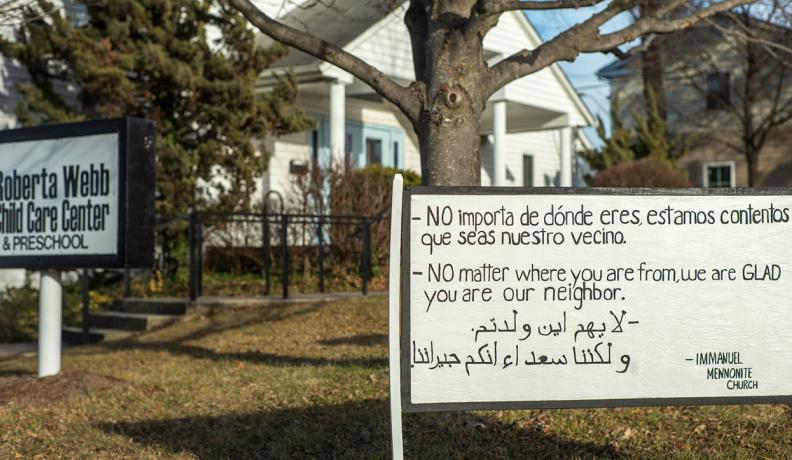 Roberta Webb
Child Care Center
& PRESCHOOL
- NO importa de dónde eres, estamos contentos
que seas nuestro vecino.
- NO matter where you are from, we are GLAD
you are our neighbor.
- لا يهم اين ولدتم.
و لكننا سعداء انكم جيراننا!
- IMMANUEL
MENNONITE
CHURCH